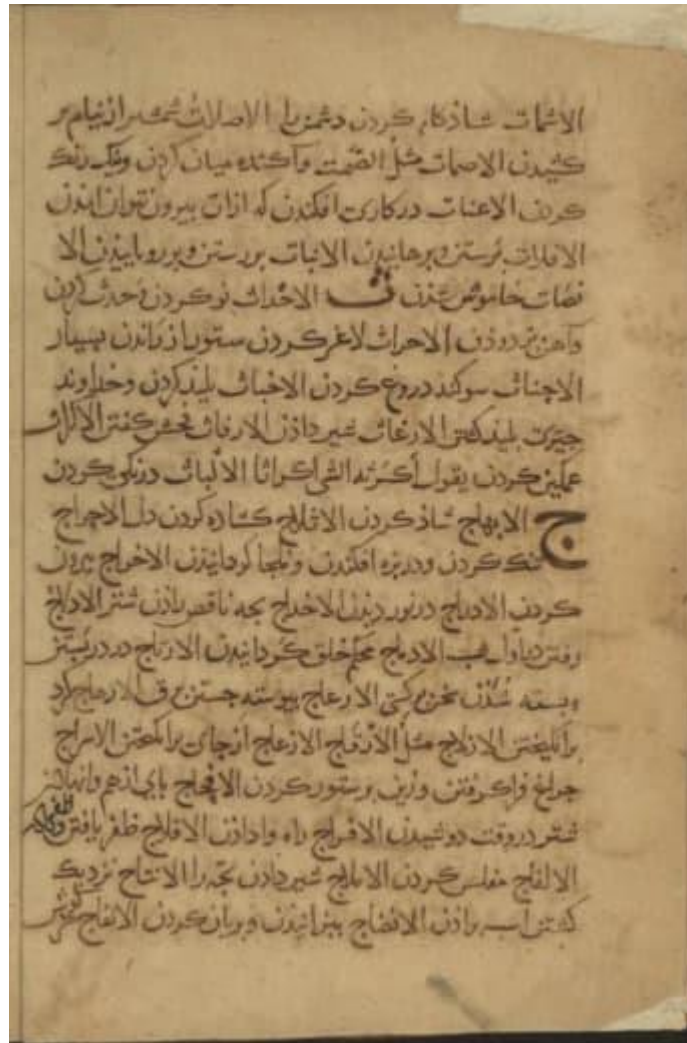 الاشمات شاذكام كردن دشمن را الاصلات شمشير از نيام بر
كشيدن الاصمات مثل الصمت وآكنده ميان كردن ويك رنك
كردن الاعنات در كارى افكندن كه ازان بيرون نتوان امذن
الافلات برستن وبرهانيدن الانبات بررستن وبررويانيدن الا
نصات خاموش شذن ث الاحداث نو كردن وحدث كردن
وآهن بزدوذن الاحراث لاغر كردن ستور از راندن بسيار
الاحناث سوكند دروغ كردن الاخباث بليذ كردن وخداوند
جيزى بليذ كشتن الارغاث شير داذن الارفاث فحش كفتن الاكراث
غمكين كردن يقول اكرثه الشى اكراثا الالباث درنكى كردن
ج الابهاج شاذ كردن الاثلاج كشاده كردن دل الاحراج
تنك كردن ودر بزه افكندن وملجا كردانيذن الاخراج بيرون
كردن الادراج در نورديذن الاخداج بجه ناقص زاذن شتر الادلاج
رفتن در اول شب الادماج محكم خلق كردانيدن الارتاج در دربستن
وبسته شذن سخن بر كسى الارعاج بيوسته جستن برق الارهاج كرد
برانكيختن الازلاج مثل الازعاج از جاى برانكيختن الاسراج
جراغ فراكرفتن وزين بر ستور كردن الافحاج باى از هم
شتر در وقت دوشيدن الافراج راه واداذن الافلاج ظفر يافتن
الالفاج مفلس كردن الاملاج شير داذن بجه را الانتاج نزديك
كشتن اسب بزاذن الانضاج ببزانيذن وبريان كردن